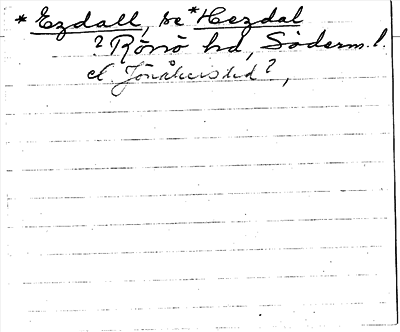 * Ezdall, se *Hezdal
? Rönö hd, Söderm. l.
el Jönåkers hd?,